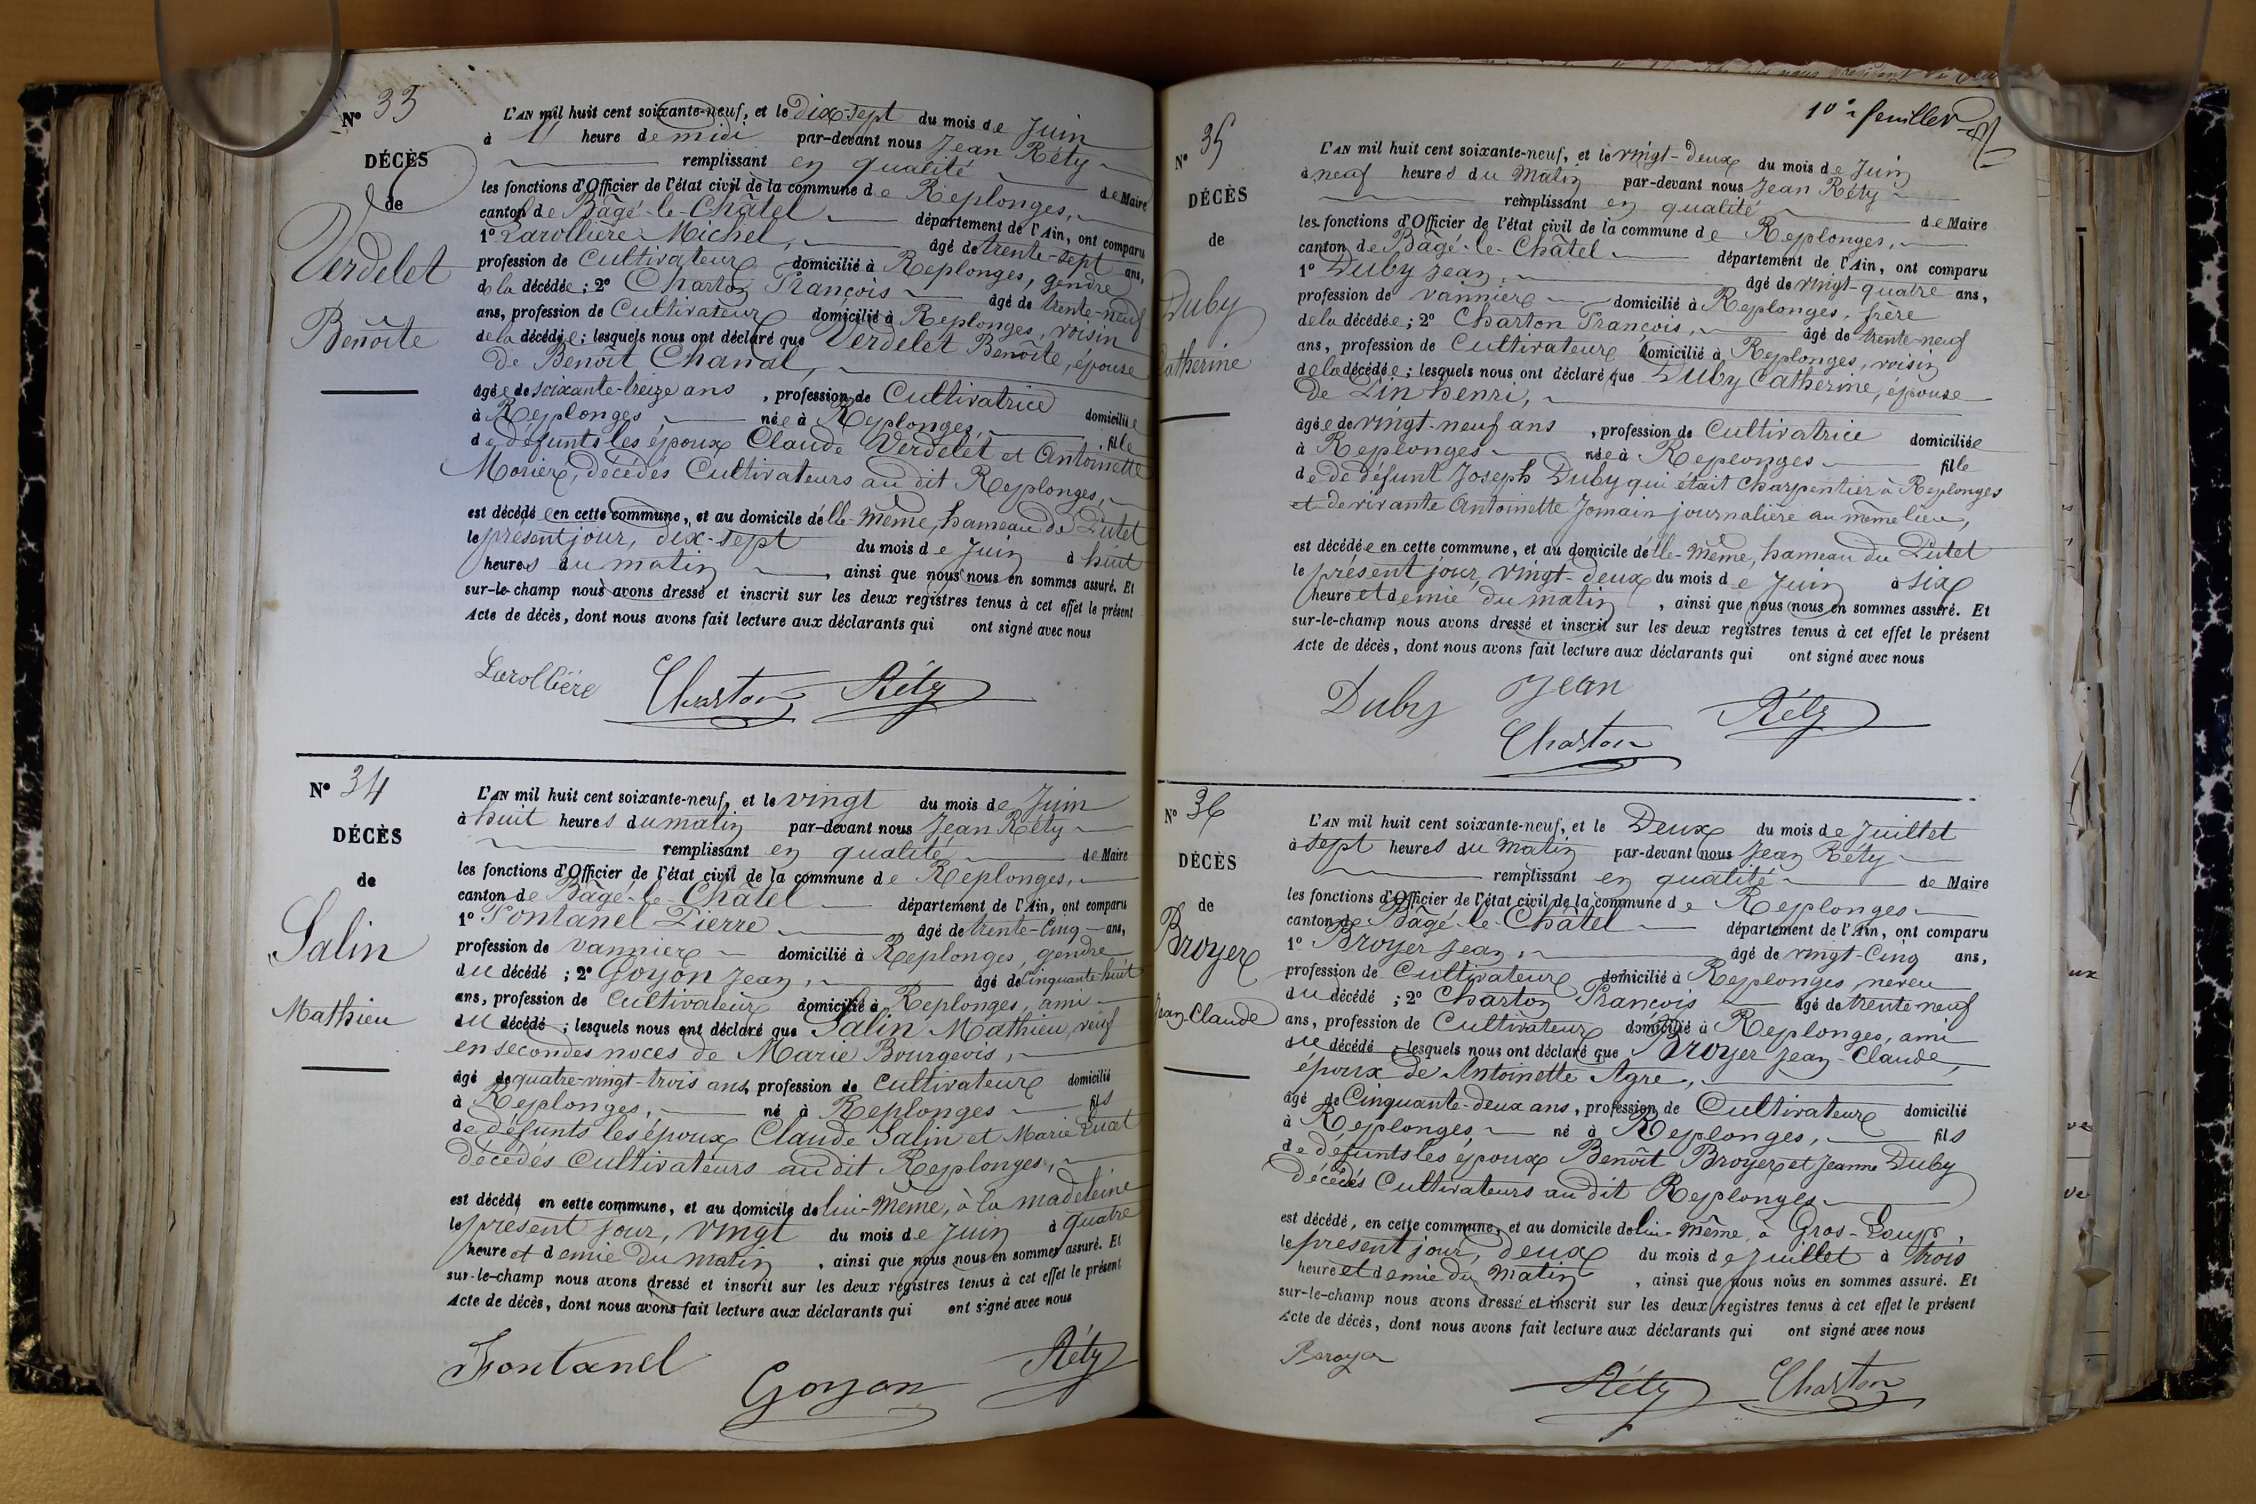 N° 33
DÉCÈS
de
Verdelet
Benoîte
L'AN mil huit cent soixante-neuf, et le Dix-sept du mois de Juin
à 1 heure de midi par-devant nous Jean Réty
remplissant en qualité de Maire
les fonctions d'Officier de l'état civil de la commune de Replonges,
canton de Bâgé-le-Châtel département de l'Ain, ont comparu
1° Larollière Michel, âgé de trente-sept ans,
profession de Cultivateur domicilié à Replonges, gendre
de la décédée; 2° Charton François âgé de trente-neuf
ans, profession de Cultivateur domicilié à Replonges, voisin
de la décédée; lesquels nous ont déclaré que Verdelet Benoîte, épouse
de Benoît Chanal,
âgée de soixante-treize ans, profession de Cultivatrice domiciliée
à Replonges née à Replonges, fille
de défunts les époux Claude Verdelet et Antoinette
décédés Cultivateurs au dit Replonges,
est décédée en cette commune, et au domicile d'elle-même, hameau du Putet
le présent jour, dix-sept du mois de Juin à huit
heures du matin, ainsi que nous nous en sommes assuré. Et
sur-le-champ nous avons dressé et inscrit sur les deux registres tenus à cet effet le présent
Acte de décès, dont nous avons fait lecture aux déclarants qui ont signé avec nous
Larollière Charton Réty
N° 34
DÉCÈS
de
Salin
Mathieu
L'AN mil huit cent soixante-neuf, et le vingt du mois de Juin
à huit heures du matin par-devant nous Jean Réty
remplissant en qualité de Maire
les fonctions d'Officier de l'état civil de la commune de Replonges,
canton de Bâgé-le-Châtel département de l'Ain, ont comparu
1° Fontanel Pierre âgé de trente-cinq ans,
profession de vannier domicilié à Replonges, gendre
du décédé; 2° Goyon Jean, âgé de cinquante-huit
ans, profession de Cultivateur domicilié à Replonges, ami
du décédé; lesquels nous ont déclaré que Salin Mathieu, veuf
en secondes noces de Marie Bourgeois,
âgé de quatre-vingt-trois ans, profession de Cultivateur domicilié
à Replonges, né à Replonges fils
de défunts les époux Claude Salin et Marie
décédés Cultivateurs au dit Replonges,
est décédé en cette commune, et au domicile de lui-même, à la madeleine
le présent jour, vingt du mois de Juin à quatre
heure et demie du matin, ainsi que nous nous en sommes assuré. Et
sur-le-champ nous avons dressé et inscrit sur les deux registres tenus à cet effet le présent
Acte de décès, dont nous avons fait lecture aux déclarants qui ont signé avec nous
Fontanel Goyon Réty
10e feuillet
N° 35
DÉCÈS
de
Duby
Catherine
L'AN mil huit cent soixante-neuf, et le vingt-deux du mois de Juin
à neuf heures du Matin par-devant nous Jean Réty
remplissant en qualité de Maire
les fonctions d'Officier de l'état civil de la commune de Replonges,
canton de Bâgé-le-Châtel département de l'Ain, ont comparu
1° Duby Jean, âgé de vingt-quatre ans,
profession de vannier domicilié à Replonges, frère
de la décédée; 2° Charton François, âgé de trente-neuf
ans, profession de Cultivateur domicilié à Replonges, voisin
de la décédée; lesquels nous ont déclaré que Duby Catherine, épouse
de Pin henri,
âgée de vingt-neuf ans, profession de Cultivatrice domiciliée
à Replonges née à Replonges fille
de défunt Joseph Duby qui était Charpentier à Replonges
et de vivante Antoinette Jomain journalière au même lieu,
est décédée en cette commune, et au domicile d'elle-même, hameau du Putet
le présent jour, vingt-deux du mois de Juin à six
heure et demie du matin, ainsi que nous nous en sommes assuré. Et
sur-le-champ nous avons dressé et inscrit sur les deux registres tenus à cet effet le présent
Acte de décès, dont nous avons fait lecture aux déclarants qui ont signé avec nous
Duby Jean Réty
Charton
N° 36
DÉCÈS
de
Broyer
Jean-Claude
L'AN mil huit cent soixante-neuf, et le Deux du mois de Juillet
à sept heures du Matin par-devant nous Jean Réty
remplissant en qualité de Maire
les fonctions d'Officier de l'état civil de la commune de Replonges
canton de Bâgé-le-Châtel département de l'Ain, ont comparu
1° Broyer Jean, âgé de vingt-cinq ans,
profession de Cultivateur domicilié à Replonges, neveu
du décédé; 2° Charton François âgé de trente-neuf
ans, profession de Cultivateur domicilié à Replonges, ami
du décédé; lesquels nous ont déclaré que Broyer Jean-Claude,
époux de Antoinette Agre,
âgé de Cinquante-deux ans, profession de Cultivateur domicilié
à Replonges né à Replonges, fils
de défunts les époux Benoît Broyer et Jeanne Duby
décédés Cultivateurs au dit Replonges
est décédé, en cette commune, et au domicile de lui-même, à Gros-Loup,
le présent jour, deux du mois de Juillet à trois
heure et demie du Matin, ainsi que nous nous en sommes assuré. Et
sur-le-champ nous avons dressé et inscrit sur les deux registres tenus à cet effet le présent
Acte de décès, dont nous avons fait lecture aux déclarants qui ont signé avec nous
Broyer Réty Charton